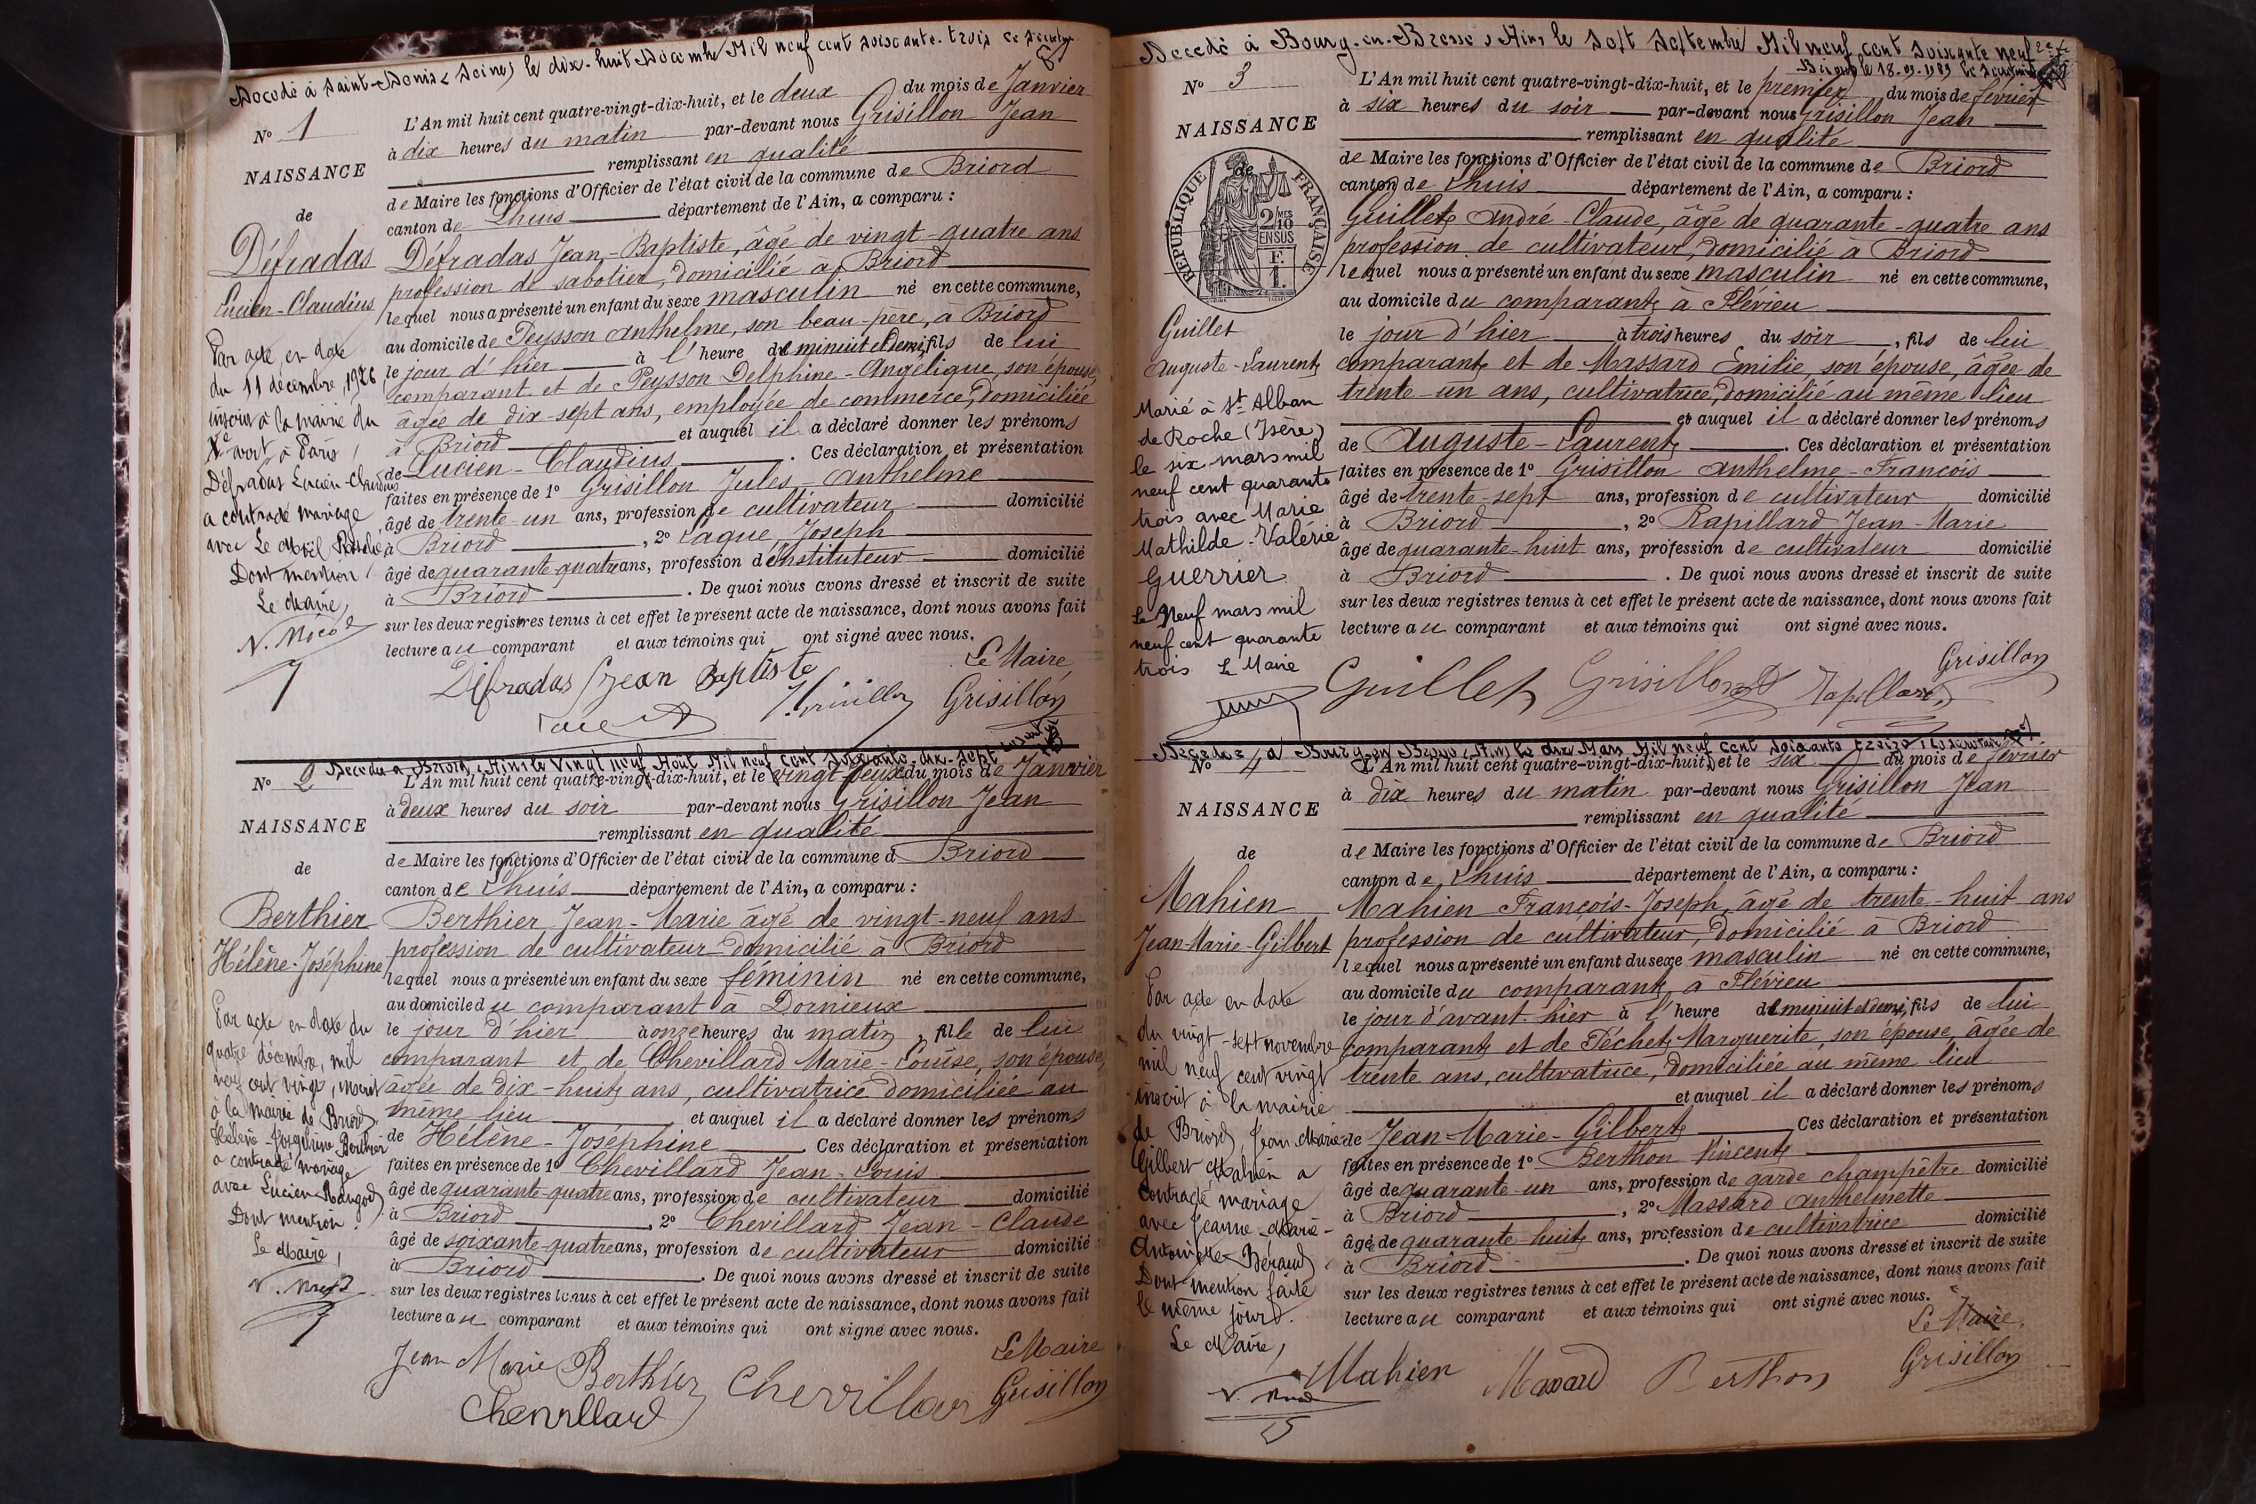 Décédé à Saint-Denis (Seine) le dix-huit Décembre Mil neuf cent soixante-trois
N° 1
NAISSANCE
de
Défradas
Lucien-Claudius
Par acte en date
du 11 décembre 1926
inscrit à la mairie du
Xe arrt à Paris,
Défradas Lucien-Claudius
a contracté mariage
avec Le
Dont mention
Le Maire,
L'An mil huit cent quatre-vingt-dix-huit, et le deux du mois de Janvier
à dix heures du matin par-devant nous Grisillon Jean
remplissant en qualité
de Maire les fonctions d'Officier de l'état civil de la commune de Briord
canton de Lhuis département de l'Ain, a comparu :
Défradas Jean-Baptiste, âgé de vingt-quatre ans
profession de sabotier, domicilié à Briord
lequel nous a présenté un enfant du sexe masculin né en cette commune,
au domicile de Peysson Anthelme, son beau-père, à Briord
le jour d'hier à l'heure de minuit et demi, fils de lui
comparant et de Peysson Delphine-Angélique, son épouse,
âgée de dix-sept ans, employée de commerce, domiciliée
à Briord et auquel il a déclaré donner les prénoms
de Lucien-Claudius . Ces déclaration et présentation
faites en présence de 1° Grisillon Jules-Anthelme
âgé de trente-un ans, profession de cultivateur domicilié
à Briord , 2° Lague, Joseph
âgé de quarante-quatre ans, profession d'instituteur domicilié
à Briord . De quoi nous avons dressé et inscrit de suite
sur les deux registres tenus à cet effet le présent acte de naissance, dont nous avons fait
lecture au comparant et aux témoins qui ont signé avec nous.
Le Maire
Défradas Jean Baptiste
Grisillon Grisillon
Décédée à Briord, Ain le Vingt neuf Août Mil neuf cent soixante-dix-sept
N° 2
NAISSANCE
de
Berthier
Hélène-Joséphine
Par acte en date du
quatre décembre mil
neuf cent vingt, inscrit
à la mairie de Briord
Hélène-Joséphine Berthier
a contracté mariage
avec Lucien
Dont mention.
Le Maire,
L'An mil huit cent quatre-vingt-dix-huit, et le vingt-deux du mois de Janvier
à deux heures du soir par-devant nous Grisillon Jean
remplissant en qualité
de Maire les fonctions d'Officier de l'état civil de la commune d Briord
canton de Lhuis département de l'Ain, a comparu :
Berthier Jean-Marie âgé de vingt-neuf ans
profession de cultivateur domicilié à Briord
lequel nous a présenté un enfant du sexe féminin né en cette commune,
au domicile du comparant à Dornieux
le jour d'hier à onze heures du matin, fille de lui
comparant et de Chevillard Marie-Louise, son épouse,
âgée de dix-huit ans, cultivatrice domiciliée au
même lieu et auquel il a déclaré donner les prénoms
de Hélène-Joséphine Ces déclaration et présentation
faites en présence de 1° Chevillard Jean-Louis
âgé de quarante-quatre ans, profession de cultivateur domicilié
à Briord , 2° Chevillard Jean-Claude
âgé de soixante-quatre ans, profession de cultivateur domicilié
à Briord . De quoi nous avons dressé et inscrit de suite
sur les deux registres tenus à cet effet le présent acte de naissance, dont nous avons fait
lecture au comparant et aux témoins qui ont signé avec nous.
Le Maire
Jean Marie Berthier Chevillard Grisillon
Chevillard
Décédé à Bourg-en-Bresse, Ain, le sept Septembre Mil neuf cent soixante neuf
Briord le 18.09.1969
N° 3
NAISSANCE
de
RÉPUBLIQUE FRANÇAISE
2/10
EN SUS
F.
1.
Guillet
Auguste-Laurent
Marié à St Alban
de Roche (Isère)
le six mars mil
neuf cent quarante
trois avec Marie
Mathilde-Valérie
Guerrier
Le Neuf mars mil
neuf cent quarante
trois Le Maire
L'An mil huit cent quatre-vingt-dix-huit, et le premier du mois de février
à six heures du soir par-devant nous Grisillon Jean
remplissant en qualité
de Maire les fonctions d'Officier de l'état civil de la commune de Briord
canton de Lhuis département de l'Ain, a comparu :
Guillet André-Claude, âgé de quarante-quatre ans
profession de cultivateur, domicilié à Briord
lequel nous a présenté un enfant du sexe masculin né en cette commune,
au domicile du comparant à Flévieu
le jour d'hier à trois heures du soir, fils de lui
comparant et de Massard Emilie, son épouse, âgée de
trente-un ans, cultivatrice, domicilié au même lieu
et auquel il a déclaré donner les prénoms
de Auguste-Laurent . Ces déclaration et présentation
faites en présence de 1° Grisillon Anthelme-François
âgé de trente-sept ans, profession de cultivateur domicilié
à Briord , 2° Rapillard Jean-Marie
âgé de quarante-huit ans, profession de cultivateur domicilié
à Briord . De quoi nous avons dressé et inscrit de suite
sur les deux registres tenus à cet effet le présent acte de naissance, dont nous avons fait
lecture au comparant et aux témoins qui ont signé avec nous.
Guillet Grisillon Rapillard Grisillon
Décédé à Bourg-en-Bresse (Ain) le dix Mars Mil neuf cent soixante treize
N° 4
NAISSANCE
de
Mahien
Jean-Marie-Gilbert
Par acte en date
du vingt-sept novembre
mil neuf cent vingt
inscrit à la mairie
de Briord Jean-Marie
Gilbert Mahien a
contracté mariage
avec Jeanne-Marie-
Antoinette Béraud
Dont mention faite
le même jour.
Le Maire,
L'An mil huit cent quatre-vingt-dix-huit, et le six du mois de février
à dix heures du matin par-devant nous Grisillon Jean
remplissant en qualité
de Maire les fonctions d'Officier de l'état civil de la commune de Briord
canton de Lhuis département de l'Ain, a comparu :
Mahien François-Joseph, âgé de trente-huit ans
profession de cultivateur, domicilié à Briord
lequel nous a présenté un enfant du sexe masculin né en cette commune,
au domicile du comparant à Flévieu
le jour d'avant-hier à l'heure de minuit et demi, fils de lui
comparant et de Péchet Marguerite, son épouse, âgée de
trente ans, cultivatrice, domiciliée au même lieu
et auquel il a déclaré donner les prénoms
de Jean-Marie-Gilbert Ces déclaration et présentation
faites en présence de 1° Berthon Vincent
âgé de quarante-un ans, profession de garde champêtre domicilié
à Briord , 2° Massard Anthelmette
âgé de quarante-huit ans, profession de cultivatrice domicilié
à Briord . De quoi nous avons dressé et inscrit de suite
sur les deux registres tenus à cet effet le présent acte de naissance, dont nous avons fait
lecture au comparant et aux témoins qui ont signé avec nous.
Le Maire,
Mahien Massard Berthon Grisillon